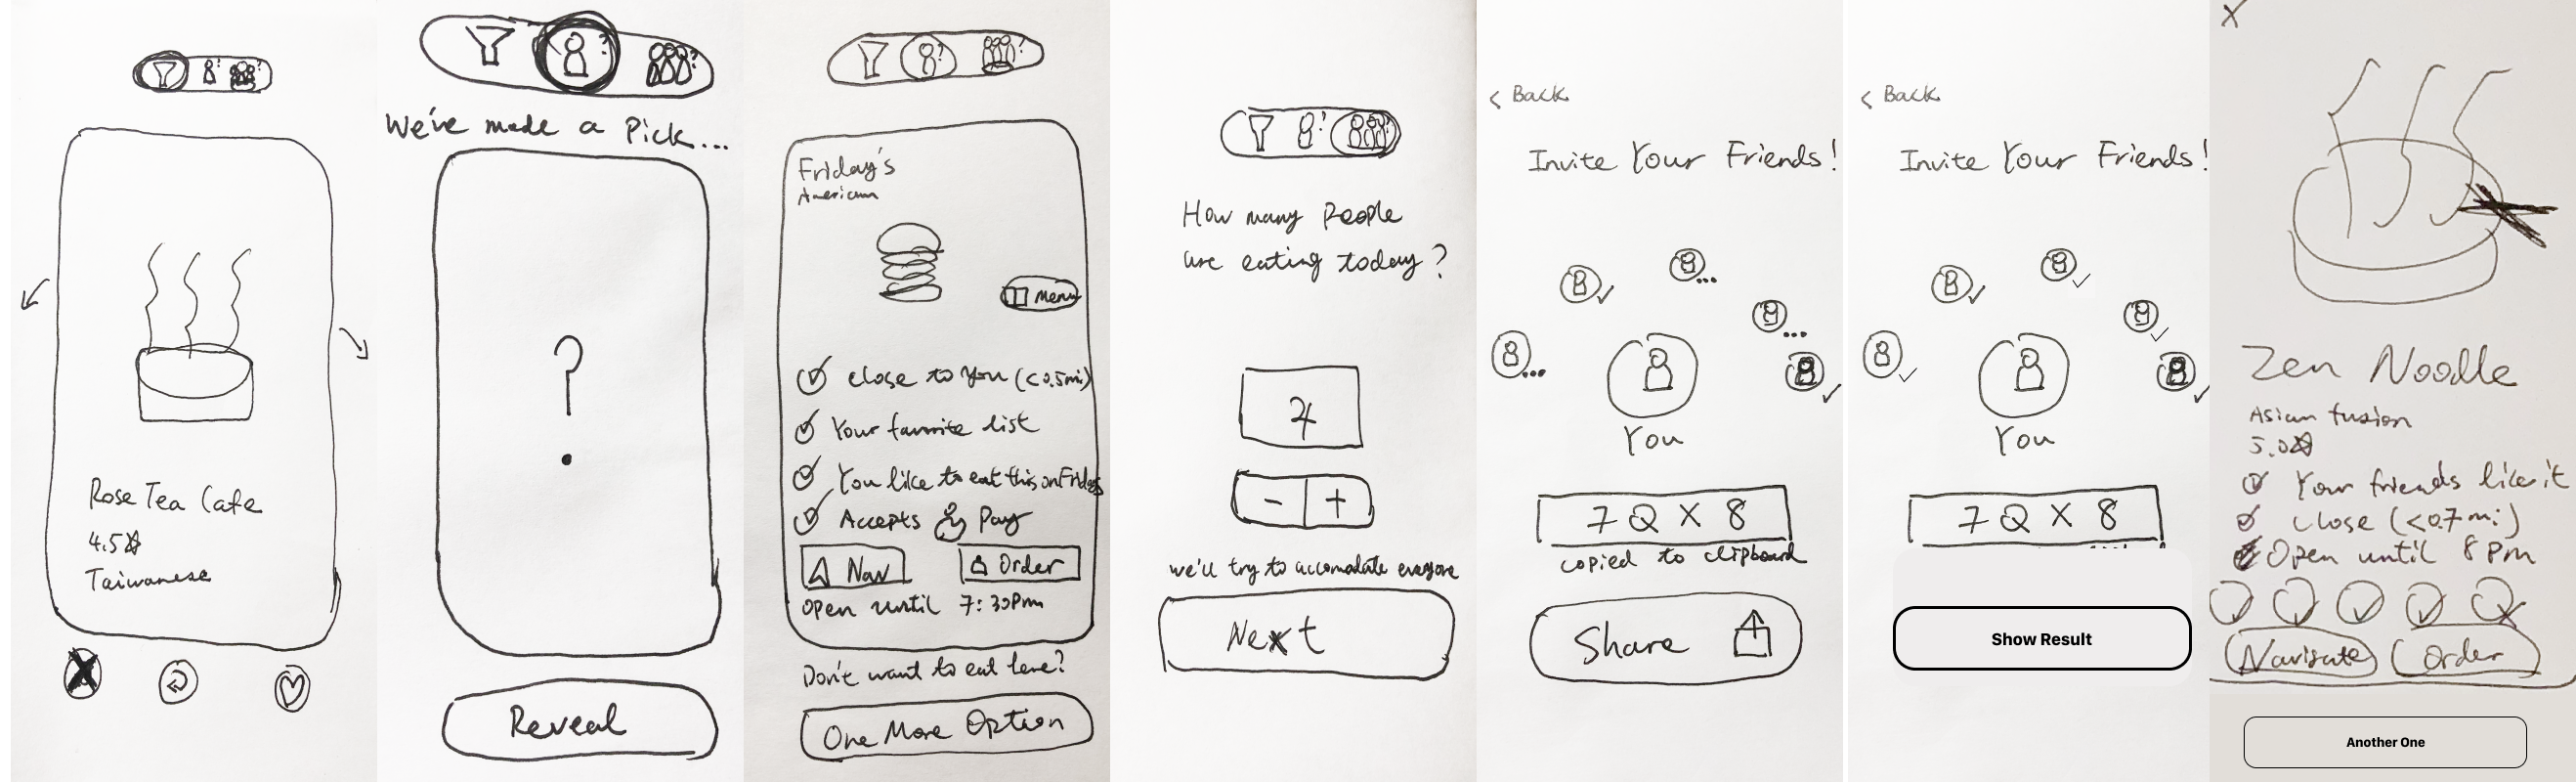 Rose Tea Cafe
4.5☆
Taiwanese
We've made a Pick...
?
Reveal
Friday's
American
Menu
Close to You (<0.5mi)
Your favorite list
You like to eat this on Fridays
Accepts Pay
Nav
Order
Open until 7:30pm
Don't want to eat here?
One More Option
How many people
are eating today?
4
- +
we'll try to accomodate everyone
Next
< Back
Invite Your Friends!
You
7QX8
copied to clipboard
Share
< Back
Invite Your Friends!
You
7QX8
Show Result
X
Zen Noodle
Asian fusion
5.0☆
Your friends like it
Close (<0.7mi)
Open until 8pm
Navigate
Order
Another One